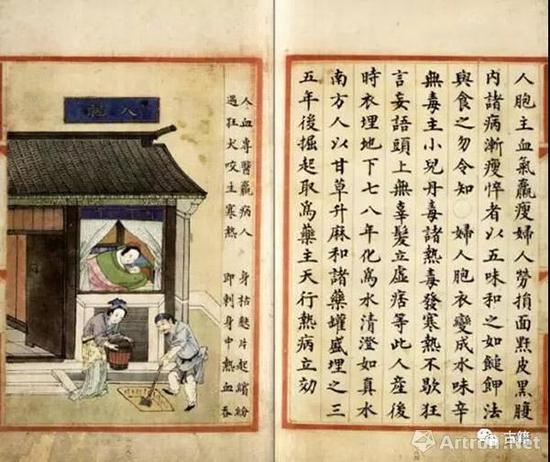 人胞主血氣羸瘦婦人勞損面䵟皮黑腹
內諸病漸瘦悴者以五味和之如鎚鉀法
與食之勿令知 婦人胞衣變成水味辛
無毒主小兒丹毒諸熱毒發寒熱不歇狂
言妄語頭上無辜髮立虛痞等此人產後
時衣埋地下七八年化爲水清澄如真水
南方人以甘草升麻和諸藥罐盛埋之三
五年後掘起取爲藥主天行熱病立効
人血專醫羸病人 身枯麩片起繽紛
遇狂犬咬主寒熱 即刺身中熱血吞
人胞
古籍
Artron.Net